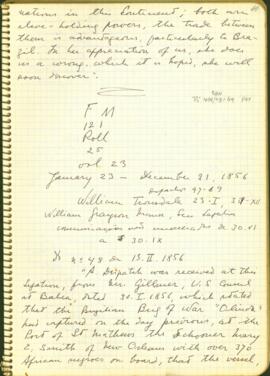 nations in this Continent; both were
slave-holding powers, the trade between
them is advantageous, particularly to Bra-
zil. In her appreciation of us, she does
us a wrong, which it is hoped, she will
soon discover".
F M
121
Roll
25
vol 23
January 23 – December 31, 1856
William Trousdale 23-I, 31-XII
William Grayson
a 30.IX
nº 48 de 15.II.1856
"A Dispatch was received at this
Legation, from Mr. Gillmer, U.S. Consul
at Bahia, dated 31.I.1856, which stated
that the Brazilian Brig of War "Olinda"
had captured on the day previous, at the
Port of St Matheus the Schooner Mary
E. Smith of New Orleans with over 370
African negroes on board, that the vessel,